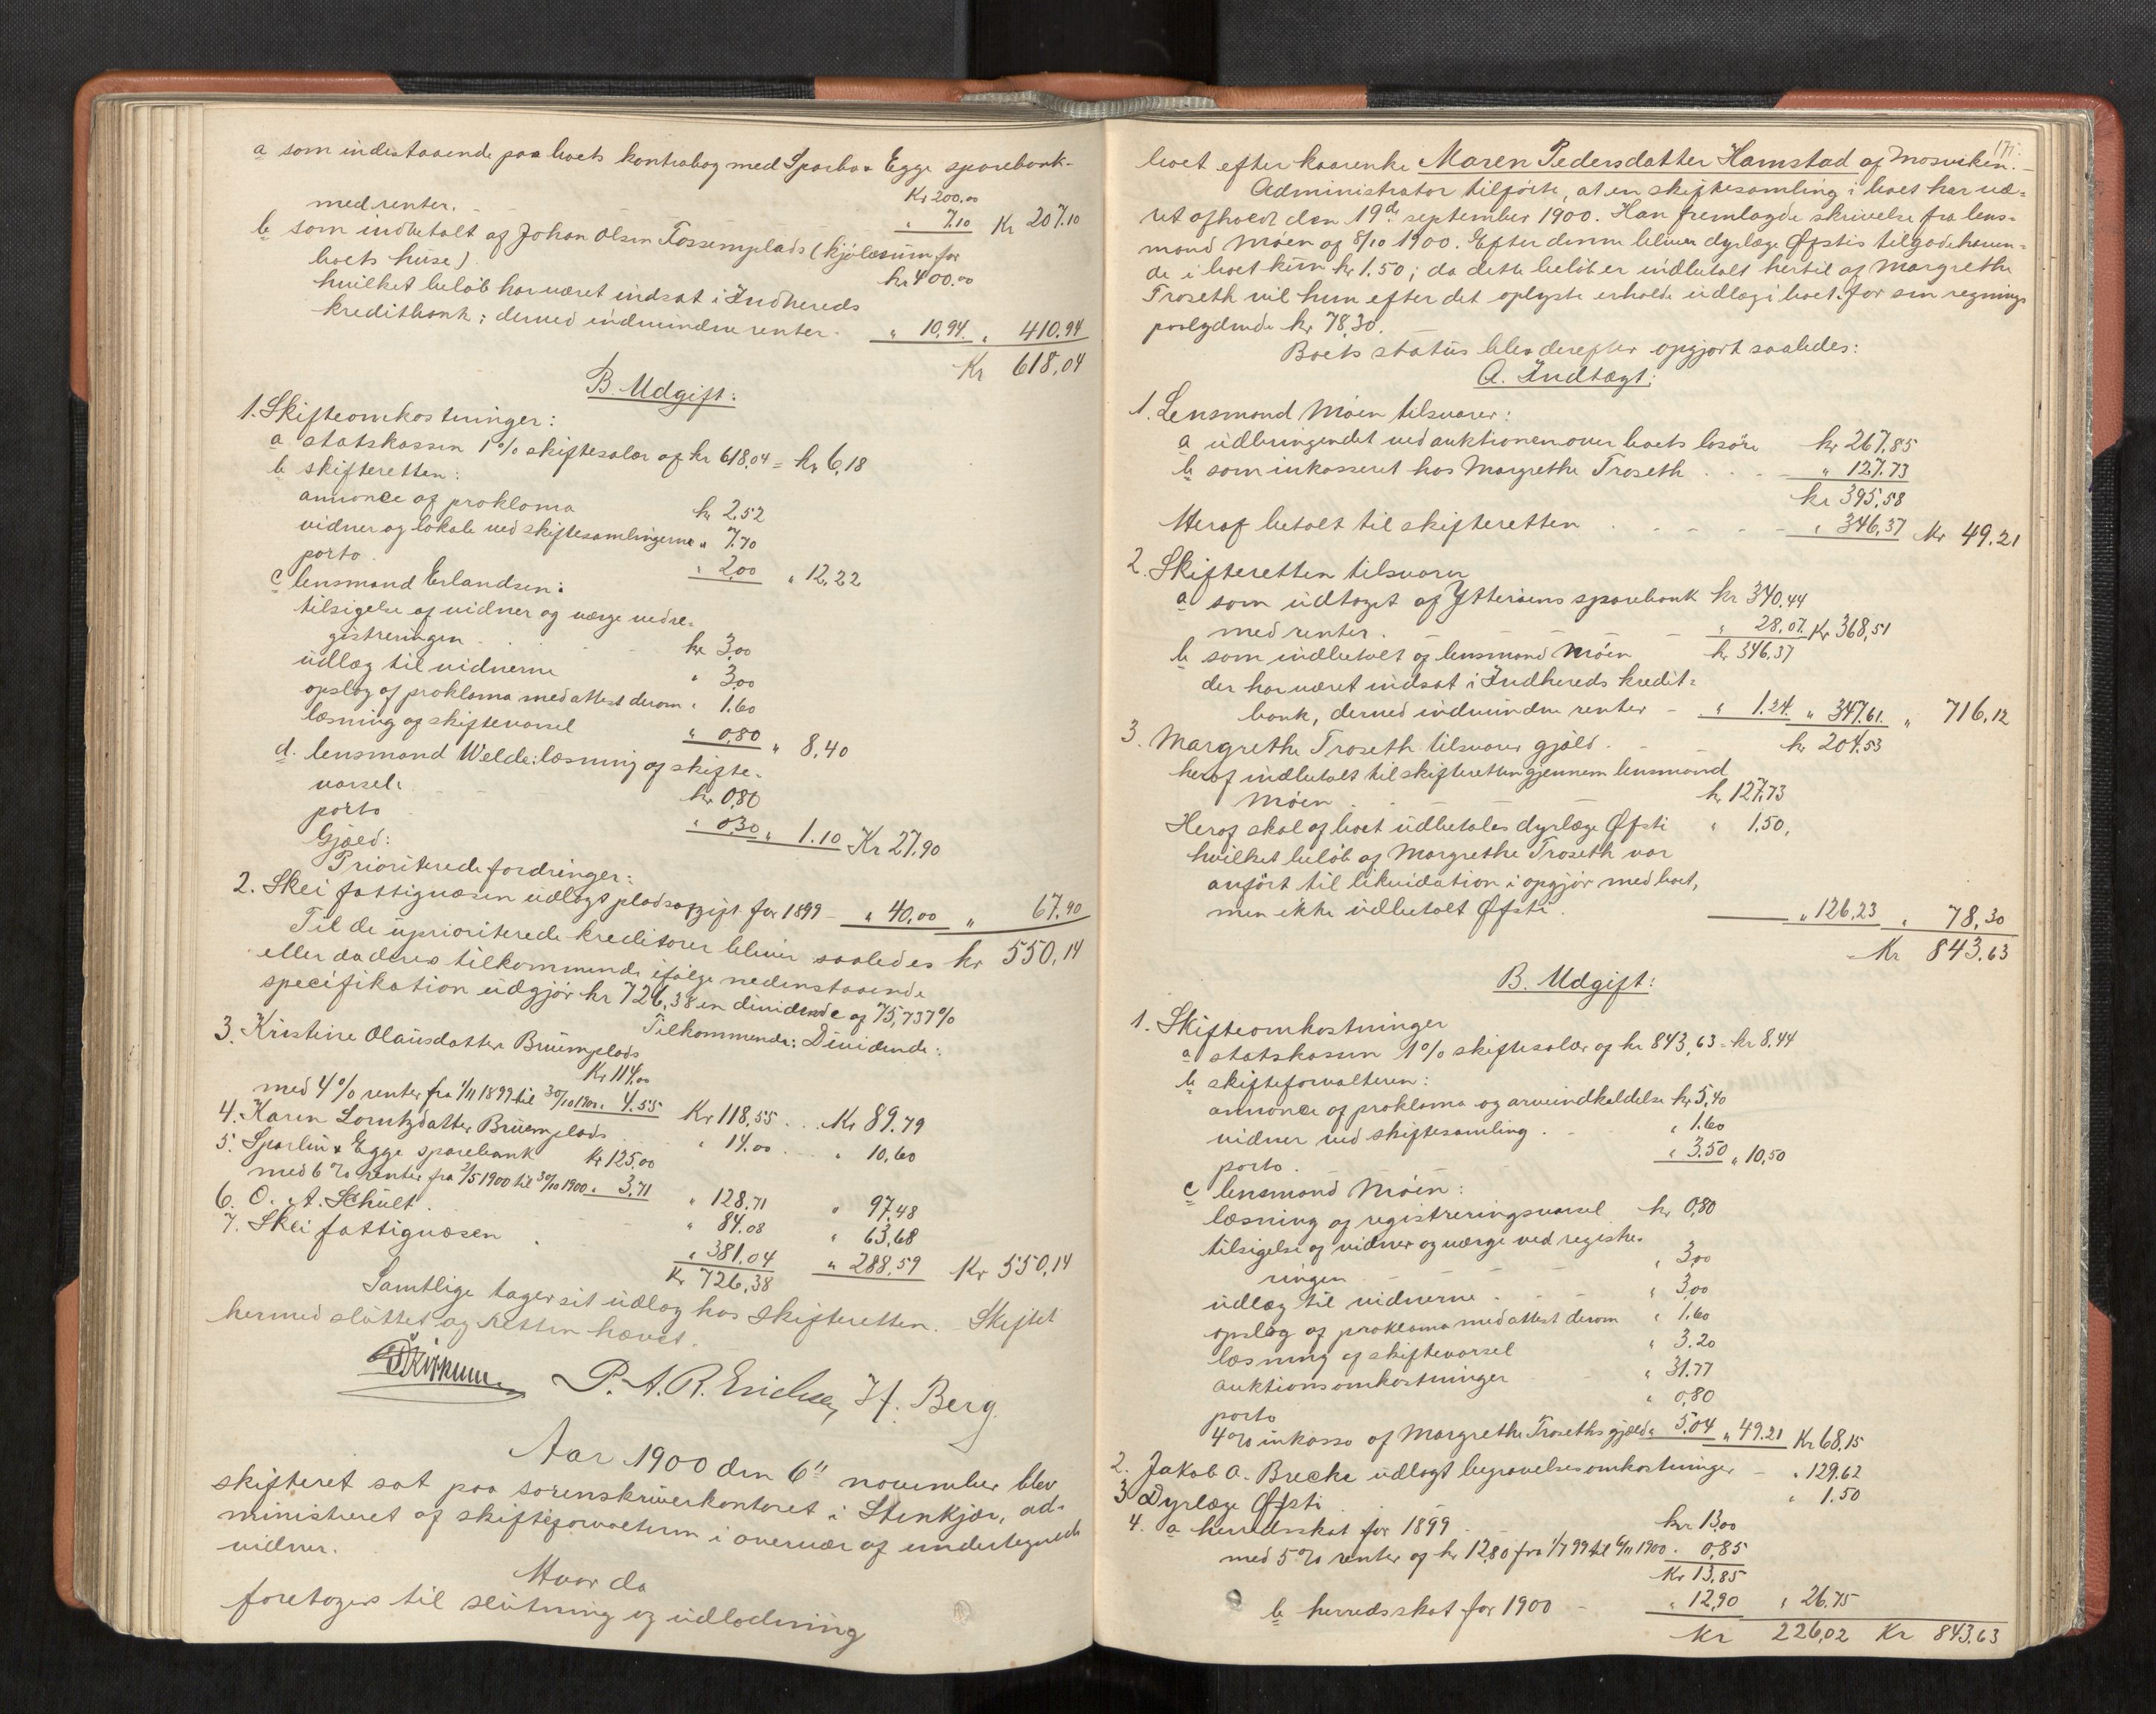 a som indestaaende paa boets kontrabog med Sparbu & Egge sparebank
Kr 200.00
med renter. " 7.10 Kr 207.10
b som indbetalt af Johan Olsen Fossemplads (kjøbesum for
boets huse) kr 400.00
hvilket beløb har været indsat i Indhereds
kreditbank; derved indvundne renter " 10,94. " 410.94
Kr 618,04
B. Udgift:
1. Skifteomkostninger:
a statskassen 1% skiftesalær af kr 618,04 = kr 6,18
b skifteretten:
annonce af proklama kr 2,52
vidner og lokale ved skiftesamlingerne " 7.70
porto. " 2,00 " 12,22
c lensmand Erlandsen:
tilsigelse af vidner og værge ved re-
gistreringen kr 3,00
udlæg til vidnerne " 3,00
opslag af proklama med attest derom " 1.60
læsning af skiftevarsel " 0,80 " 8,40
d. lensmand Welde: læsning af skifte-
varsel: kr 0,80
porto " 0,30 " 1.10 Kr 27.90
Gjæld:
Prioriterede fordringer:
2. Skei fattigvæsen udlagt pladsafgift for 1899 " 40,00 " 67.90
Til de uprioriterede kreditorer bliver saaledes kr 550,14
eller da deres tilkommende ifølge nedenstaaende
specifikation udgjør kr 726,38 en dividende af 75,737%
Tilkommende: Dividende:
3. Kristine Olausdatter Bruemplads
Kr 114,00
med 4% renter fra 1/11 1899 til 30/10 1900. 4.55 Kr 118,55 ... Kr 89.79
4. Karen Lorntzdatter Bruemplads " 14.00 " 10,60
5. Sparbu & Egge sparebank Kr 125,00
med 6% renter fra 2/5 1900 til 30/10 1900. 3,71 " 128,71 " 97,48
6. O. A. Schult " 84.08 " 63,68
7. Skei fattigvæsen " 381.04 " 288,59 Kr 550,14
Kr 726,38
Samtlige tager sit udlæg hos skifteretten. Skiftet
hermed sluttet og retten hævet.
P. A. R. Erichsen H. Berg.
Aar 1900 den 6" november blev
skifteret sat paa sorenskriverkontoret i Stenkjær, ad-
ministreret af skifteforvalteren i overvær af undertegnede
vidner.
Hvor da
foretoges til slutning og udlodning
171.
boet efter kaarenke Maren Pedersdatter Hamstad af Mosviken.
Administrator tilførte, at en skiftesamling i boet har væ-
ret afholdt den 19de september 1900. Han fremlagde skrivelse fra lens-
mand Møen af 8/10 1900. Efter denne bliver dyrlæge Øfstis tilgodehaven-
de i boet kun kr 1.50; da dette beløb er indbetalt hertil af Margrethe
Troseth vil hun efter det oplyste erholde udlæg i boet for sin regnings
paalydende kr 78,30.
Boets status blev derefter opgjort saaledes:
A. Indtægt:
1. Lensmand Møen tilsvarer:
a udbringendet ved auktionen over boets løsøre kr 267,85
b som inkasseret hos Margrethe Troseth " 127.73
kr 395,58
Heraf betalt til skifteretten " 346,37 Kr 49.21
2. Skifteretten tilsvarer
a som udtaget af Ytterøens sparebank kr 340,44
med renter. " 28,07. Kr 368,51
b som indbetalt af lensmand Møen kr 346,37
der har været indsat i Indhereds kredit-
bank, derved indvundne renter " 1.24. " 347,61. " 716,12
3. Margrethe Troseth tilsvarer gjæld. kr 204.53
heraf indbetalt til skifteretten gjennem lensmand
Møen kr 127,73
Heraf skal af boet udbetales dyrlæge Øfsti " 1,50,
hvilket beløb af Margrethe Troseth var
anført til likvidation i opgjør med boet,
men ikke udbetalt Øfsti. " 126,23 " 78,30
Kr 843.63
B. Udgift:
1. Skifteomkostninger
a statskassen 1% skiftesalær af kr 843,63 = kr 8.44
b skifteforvalteren:
annonce af proklama og arveindkaldelse kr 5,40
vidner ved skiftesamling. " 1.60
porto. " 3.50 " 10,50
c lensmand Møen:
læsning af registreringsvarsel kr 0,80
tilsigelse af vidner og værge ved registre-
ringen " 3,00
udlæg til vidnerne " 3,00
opslag af proklama med attest derom " 1.60
læsning af skiftevarsel " 3.20
auktionsomkostninger " 31.77
porto " 0,80
4% inkasso af Margrethe Troseths gjæld " 5,04 " 49.21 Kr 68,15
2. Jakob A. Brecke udlagt begravelsesomkostninger " 129.62
3 Dyrlæge Øfsti " 1.50
4. a herredsskat for 1899 kr 13,00
med 5% renter af kr 12,80 fra 1/7 99 til 6/11 1900. 0,85
Kr 13,85
b herredsskat for 1900 " 12,90 " 26.75
Kr 226,02 Kr 843,63